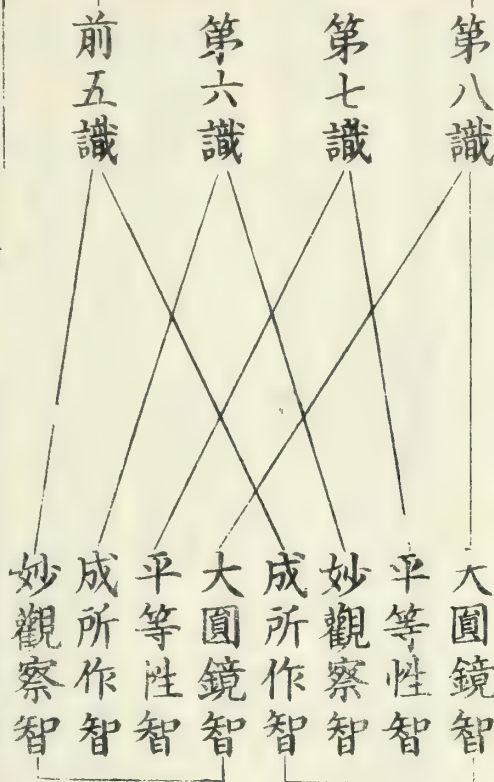 第八識
第七識
第六識
前五識
大圓鏡智
平等性智
妙觀察智
成所作智
大圓鏡智
平等性智
成所作智
妙觀察智